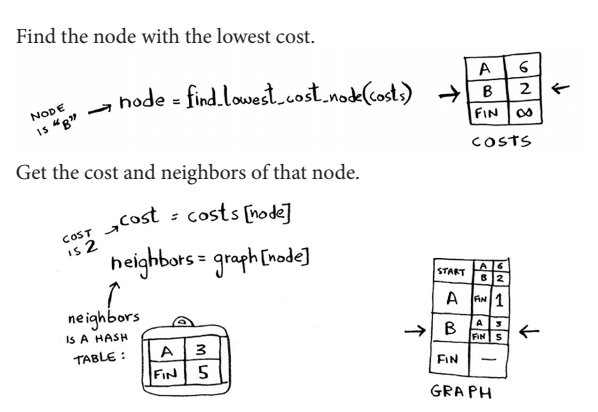 Find the node with the lowest cost.
NODE IS "B"
node = find_lowest_cost_node(costs)
A 6
B 2
FIN ∞
COSTS
Get the cost and neighbors of that node.
COST IS 2
cost = costs[node]
neighbors = graph[node]
neighbors
IS A HASH
TABLE:
A 3
FIN 5
START A 6
B 2
A FIN 1
B A 3
FIN 5
FIN —
GRAPH